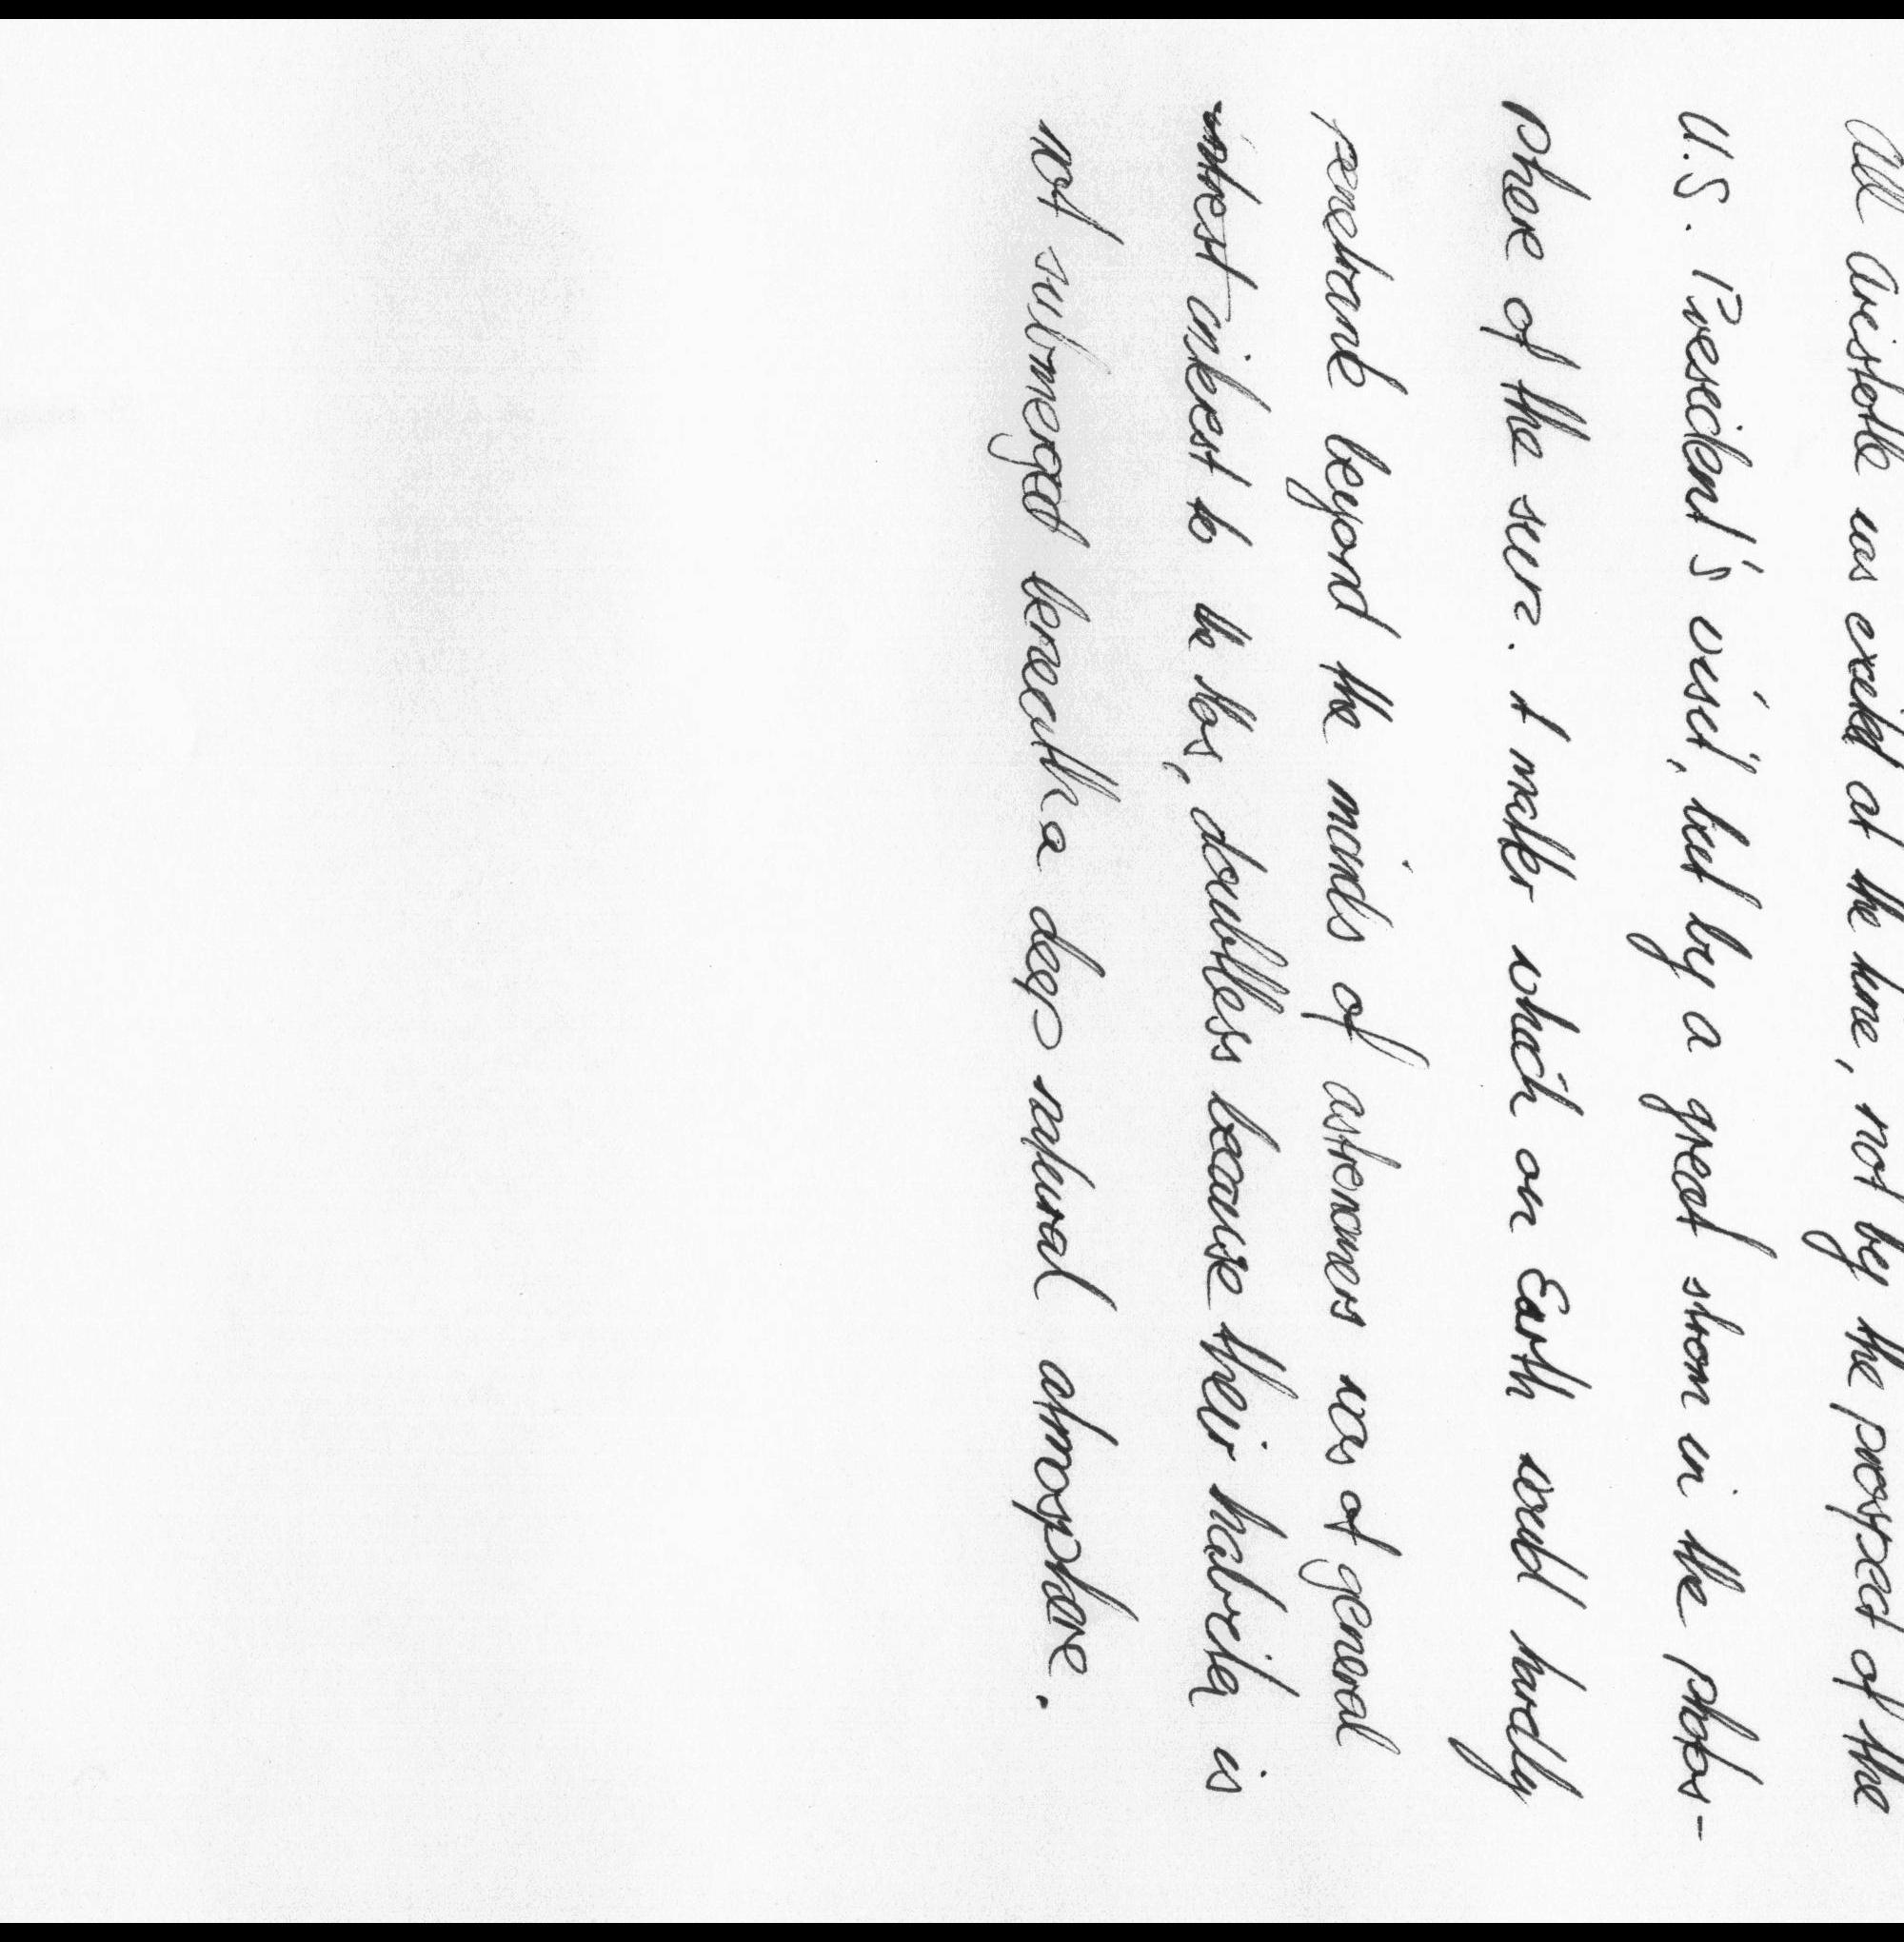 All Aristotle was excited at the time, not by the prospect of the
U.S. President's visit, but by a great strom in the photos-
phere of the sun. A matter which on Earth would hardly
penetrate beyond the minds of astronomers was of general
intrest interest to the Hos, doubtless because their habeita is
not submerged beneath a deep natural atmosphere.